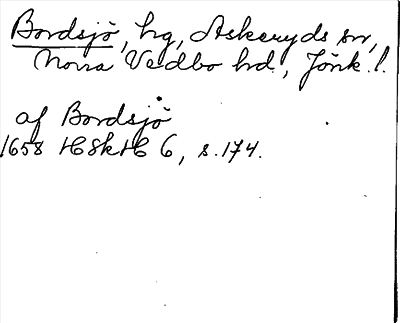 Bordsjö, hg, Askeryds sn,
Norra Vedbo hd, Jönk. l.
af Bordsjö
1658 HSkH 6, s. 174.